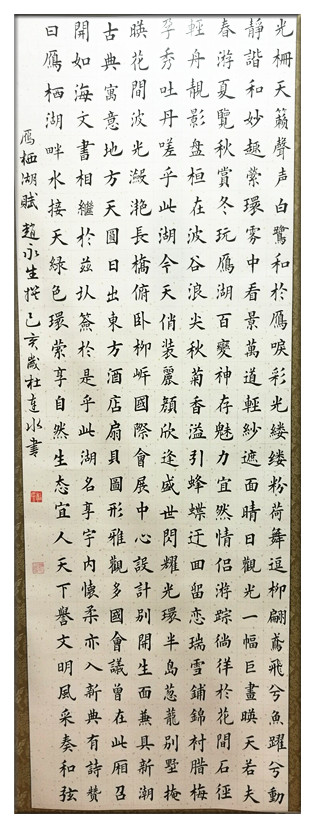 光栅天籁聲声白鷺和於雁唳彩光縷縷粉荷舞逗柳翩鳶飛兮魚躍兮動
靜諧和妙趣縈環雾中看景萬道輕紗遮面晴日觀光一幅巨畫暎天若夫
春游夏覽秋賞冬玩雁湖百變神存魅力宜然情侣游踪徜徉於花間石徑
輕舟靚影盘桓在波谷浪尖秋菊香溢引蜂蝶迂回留恋瑞雪鋪錦衬腊梅
孕秀吐丹嗟乎此湖今天俏装麗顏欣逢盛世閃耀光環半岛葱蘢别墅掩
暎花間波光潋滟長橋俯卧柳岍國際會展中心設計别開生面兼具新潮
古典寓意地方天圓日出東方酒店扇貝圖形雅觀多國會議曾在此厢召
開如海文書相繼於兹圦簽於是乎此湖名享宇内懷柔亦入新典有詩赞
曰雁栖湖畔水接天緑色環縈享自然生态宜人天下譽文明風采奏和弦
雁栖湖賦趙永生撰己亥歲杜连水書